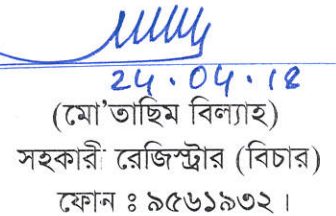 24.04.18
(মো'তাছিম বিল্যাহ)
সহকারী রেজিস্ট্রার (বিচার)
ফোন ঃ ৯৫৬১৯৩২।